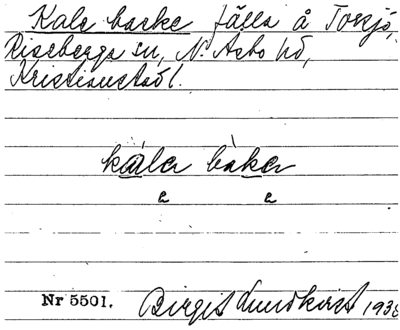 Kale backe fälla å Torsjö,
Riseberga sn, N. Åsbo hd,
Kristianstad l.
kåla bàka
a a
Nr 5501. Birgit Lundkvist 1938